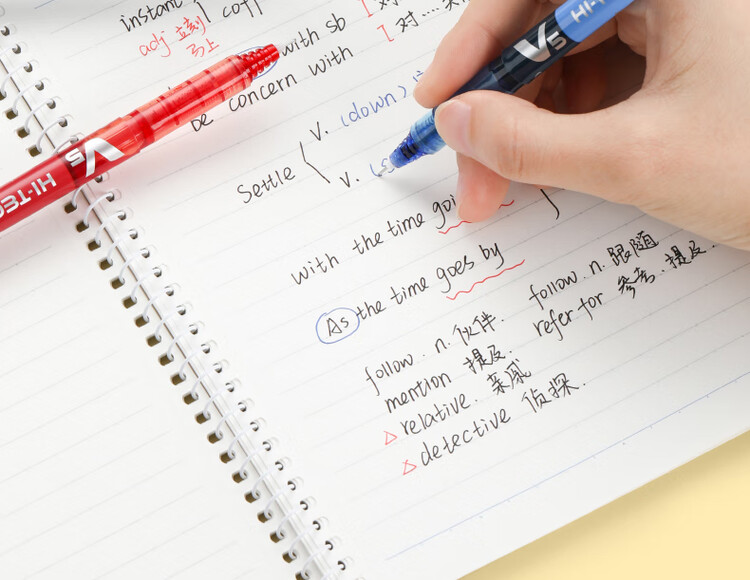 instant
adj 立刻
马上
with sb
[对
be concern with
[对……关
Settle
v. (down)
v. (s
with the time goi
As the time goes by
follow. n. 伙伴. follow. n. 跟随
mention 提及. refer for 参考. 提及.
△ relative. 亲戚
△ detective 侦探.
HI-TEC
V5
V5
HI-T